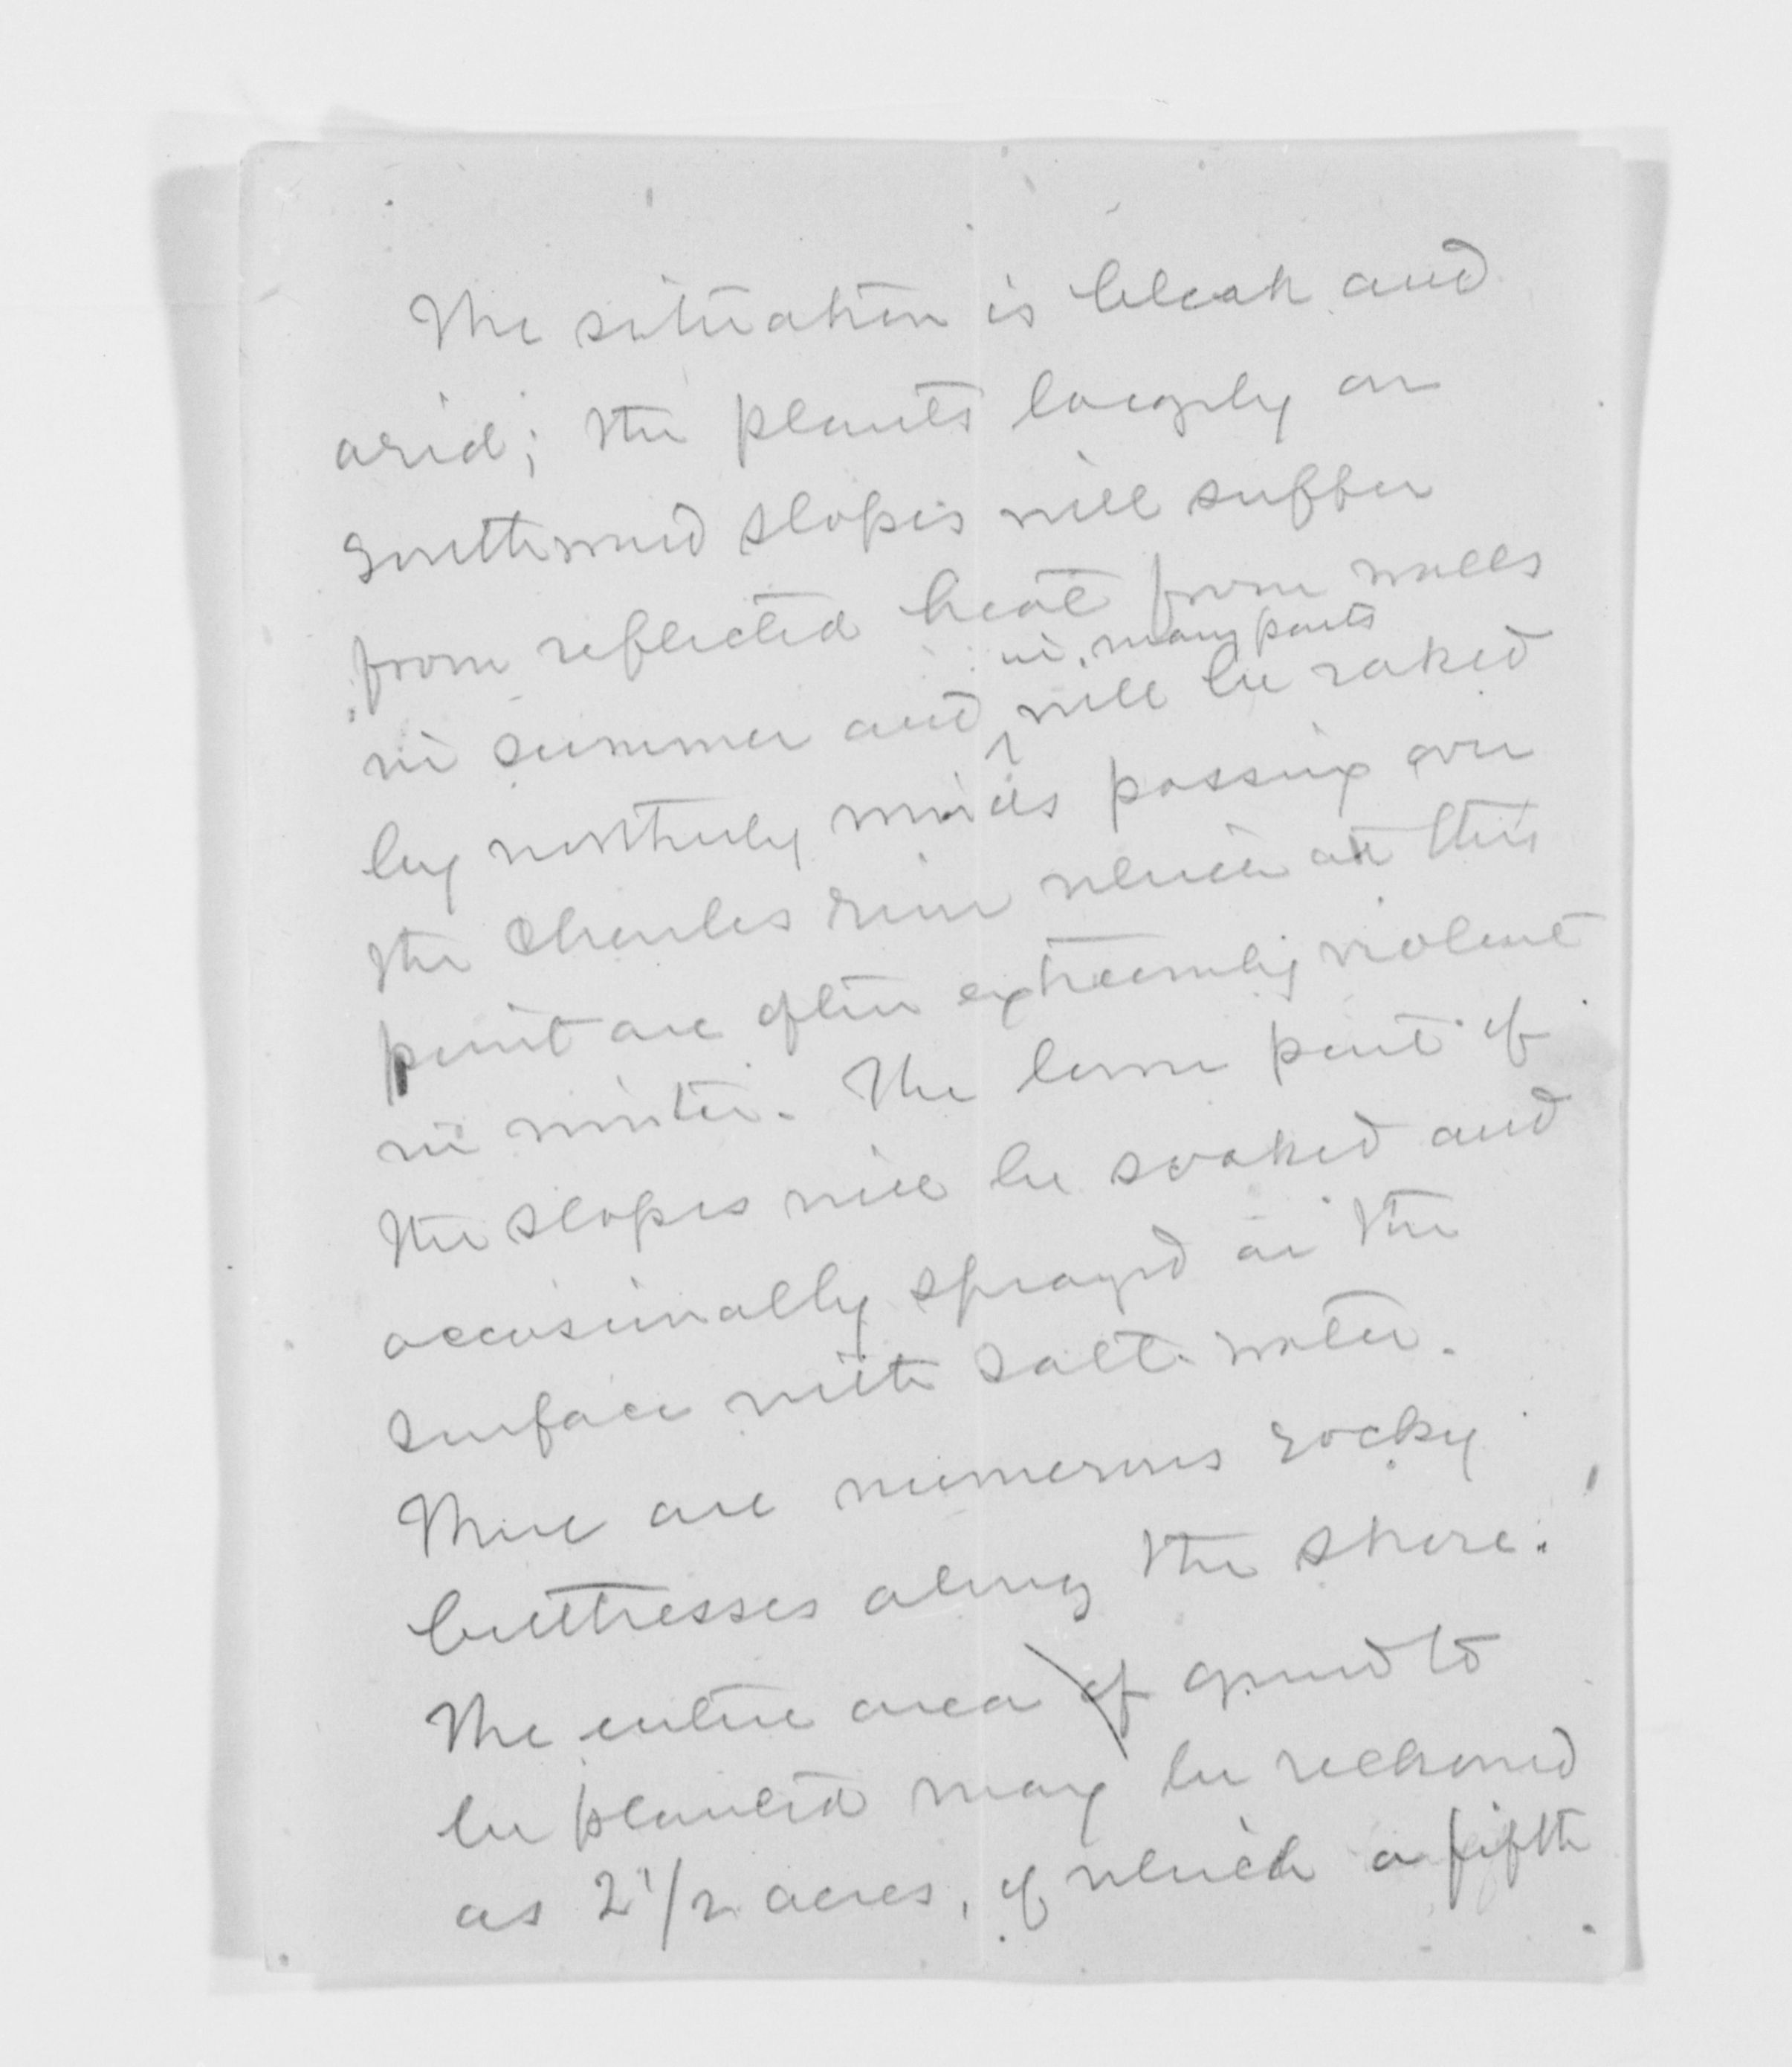 The situation is bleak and
arid; the plants largely on
southward slopes will suffer
from reflected heat from walls
in many parts
in summer and ^ will be raked
by northerly winds passing over
the Charles river which at this
point are often extreemly violent
in winter. The lower part of
the slopes will be soaked and
occasionally sprayed on the
surface with salt water.
There are numerous rocky
buttresses along the shore.
The entire area of ground to
be planted may be reckoned
as 2 1/2 acres, of which a fifth